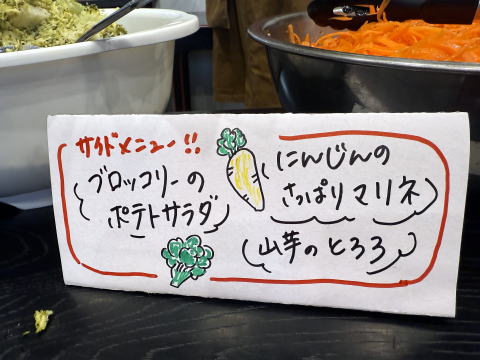 サイドメニュー!!
ブロッコリーの
ポテトサラダ
にんじんの
さっぱりマリネ
山芋のとろろ